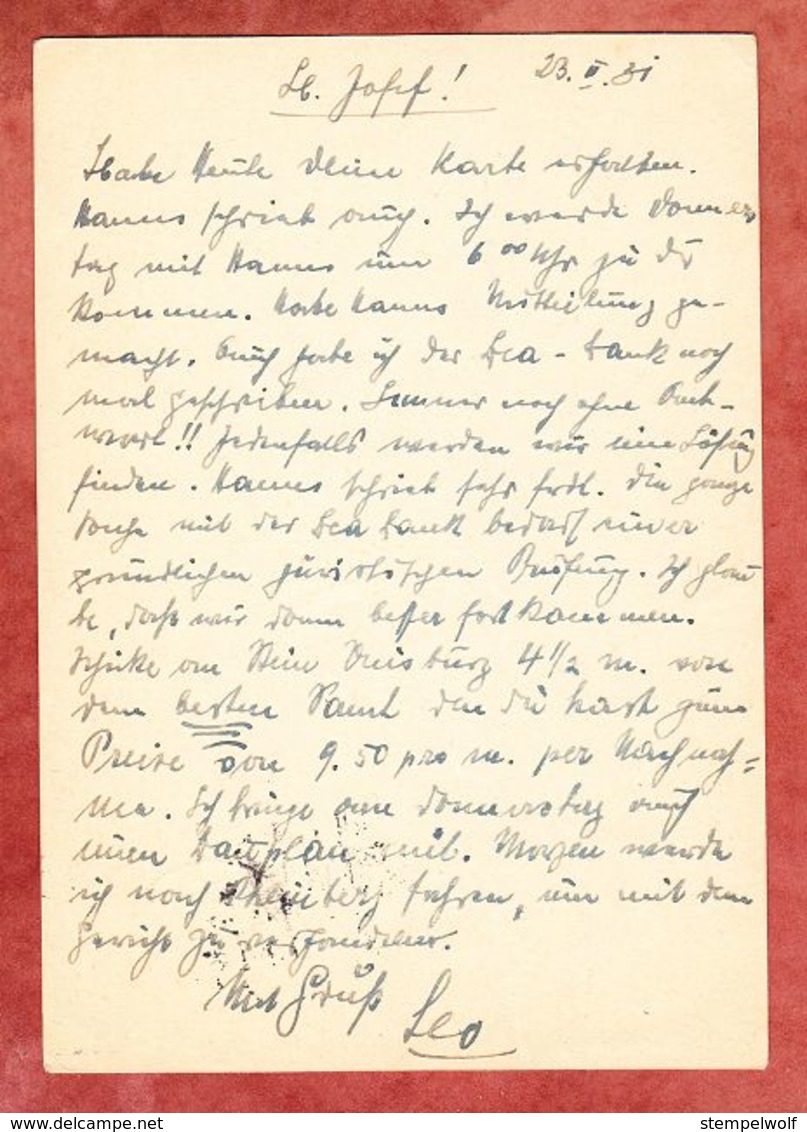 Lb. Josef! 23.II.31
Habe heute deine Karte erhalten.
Hanns schrieb auch. Ich werde Donners
tag mit Hanns um 6 00 Uhr zu dir
kommen. Habe Hanns Mitteilung ge-
macht. Auch habe ich der Dea-Bank noch
mal geschrieben. Immer noch ohne Ant-
wort!! Jedenfalls werden wir eine Lösung
finden. Hanns schrieb sehr frdl. Die ganze
Sache mit der Dea Bank bedarf einer
gründlichen juristischen Prüfung. Ich glau
be, daß wir dann besser fortkommen.
Schicke an Stein Duisburg 4 1/2 m. von
dem besten Samt den du hast zum
Preise von 9.50 pro m. per Nachnah=
me. Ich bringe am Donnerstag auch
einen Bauplan mit. Morgen werde
ich nach Rheinberg fahren, um mit dem
Gericht zu verhandeln.
Mit Gruß
Leo
stempelwolf